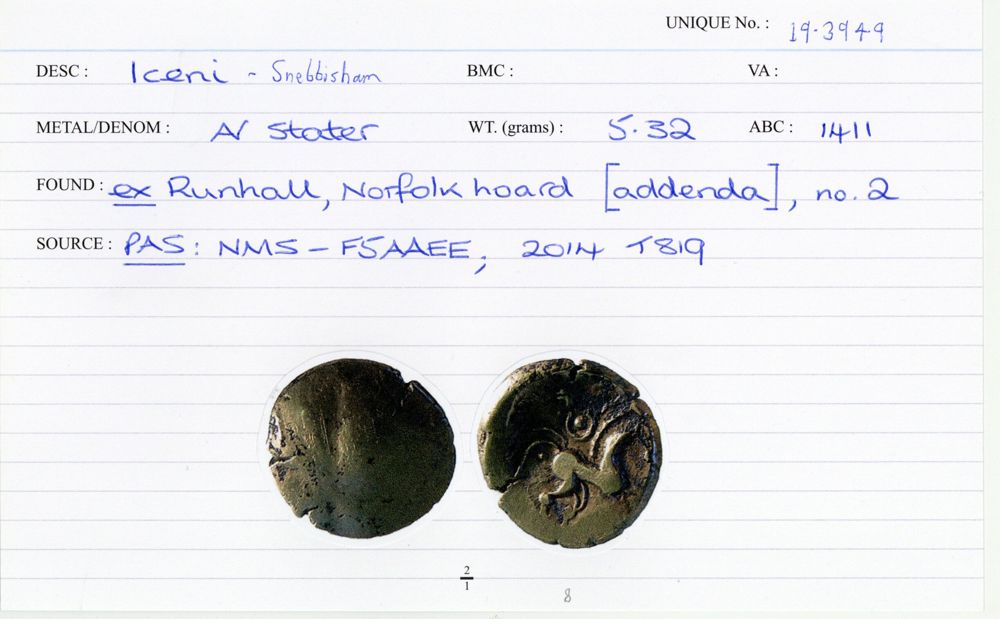 UNIQUE No. : 19-3949
DESC : Iceni - Snebbisham BMC : VA :
METAL/DENOM : AV Stater WT. (grams) : 5.32 ABC : 1411
FOUND : ex Runhall, Norfolk hoard [addenda], no. 2
SOURCE : PAS: NMS-F5AAEE; 2014 T819
2
1
8